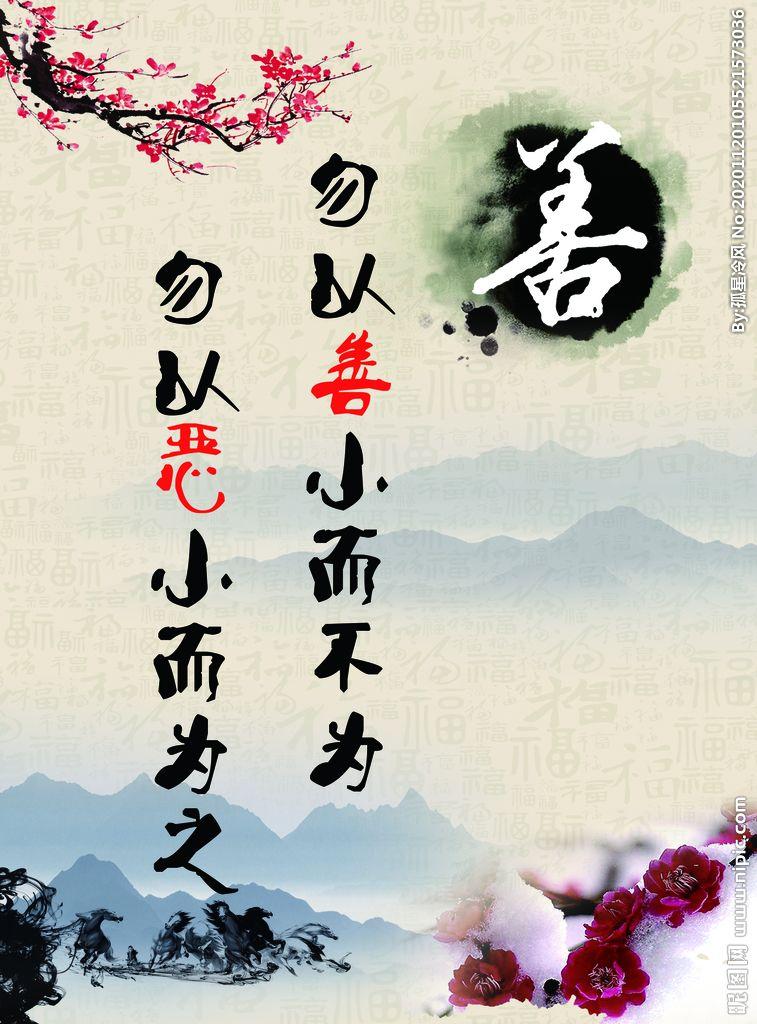 善
勿以善小而不为
勿以恶小而为之
By:孤星冷风 No:20201120105521573036
昵图网 www.nipic.com